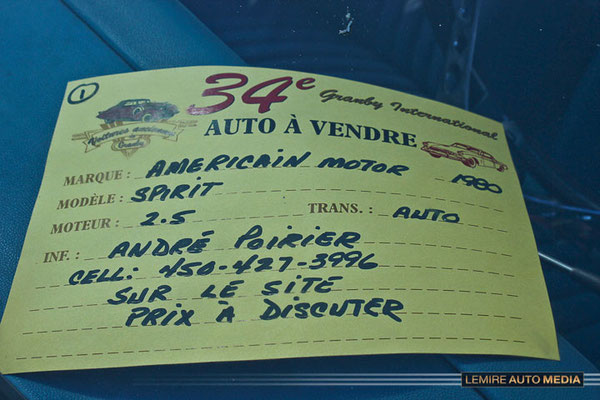 1
34e Granby International
Voitures anciennes
Granby
AUTO À VENDRE
MARQUE : AMERICAIN MOTOR 1980
MODÈLE : SPIRIT
MOTEUR : 2.5 TRANS. : AUTO
INF. : ANDRÉ POIRIER
CELL: 450-427-3996
SUR LE SITE
PRIX À DISCUTER
LEMIRE AUTO MEDIA